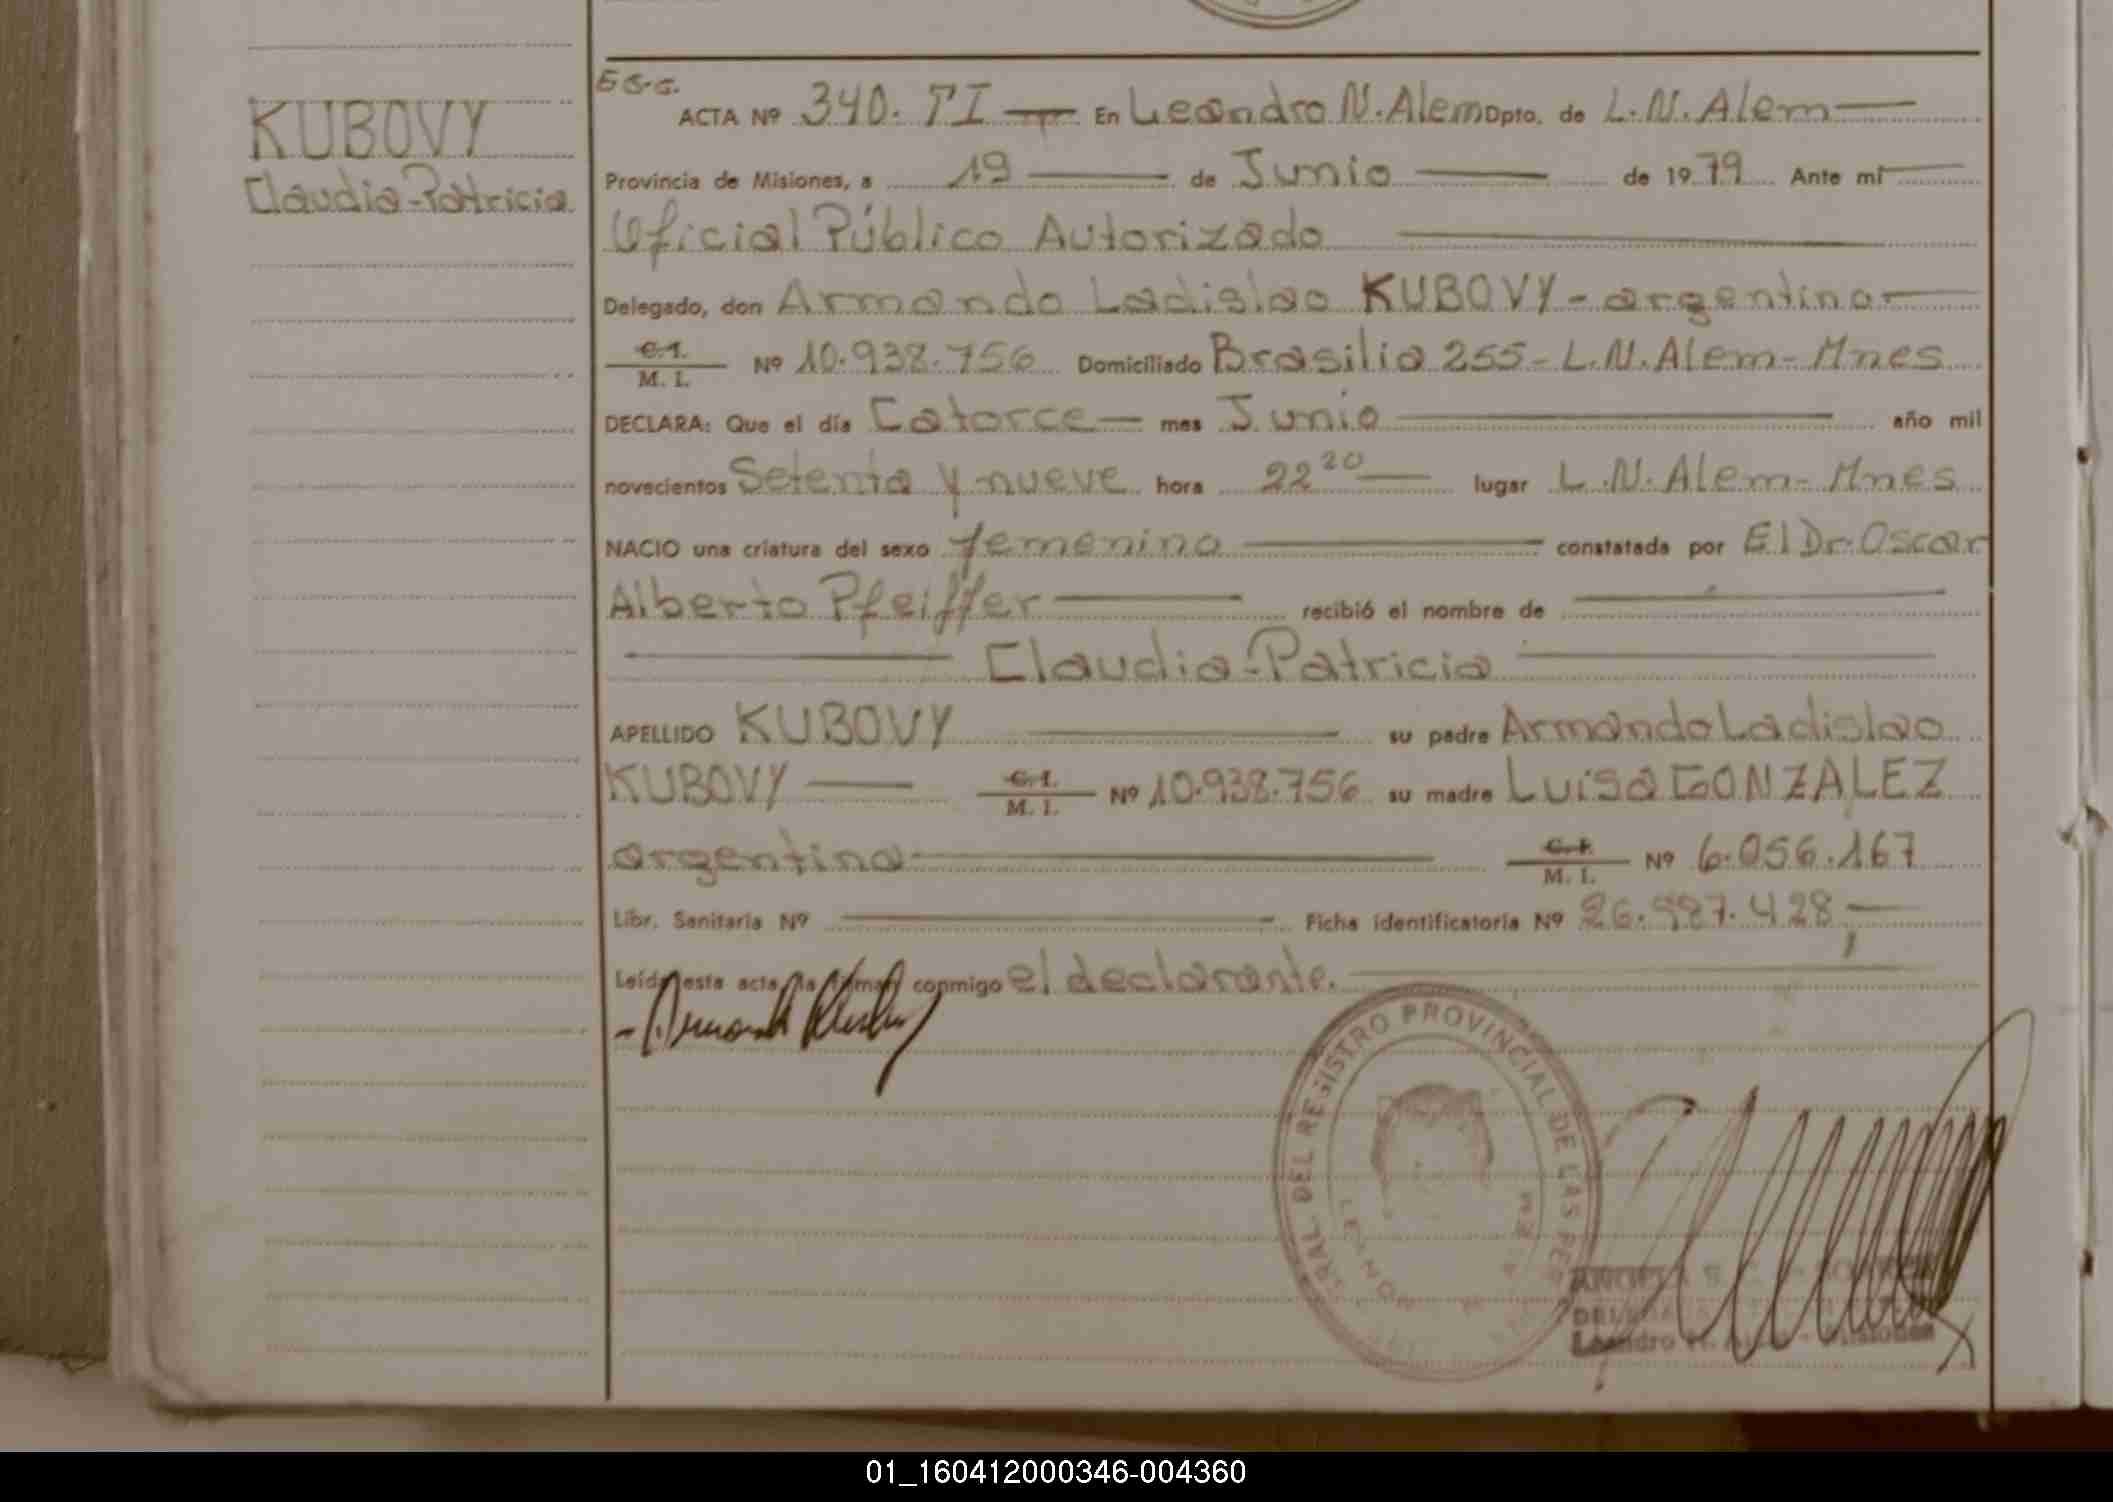 KUBOVY
Claudia-Patricia
ACTA Nº 340. TI En Leandro N. Alem Dpto. de L.N. Alem
Provincia de Misiones, a 19 de Junio de 1979 Ante mí
Oficial Público Autorizado
Delegado, don Armando Ladislao KUBOVY - argentino
C.I. M. I. Nº 10.938.756 Domiciliado Brasilia 255 - L.N. Alem - Mnes
DECLARA: Que el día Catorce mes Junio año mil
novecientos Setenta y nueve hora 22 20 lugar L.N. Alem - Mnes
NACIO una criatura del sexo femenino constatada por El Dr. Oscar
Alberto Pfeiffer recibió el nombre de
Claudia-Patricia
APELLIDO KUBOVY su padre Armando Ladislao
KUBOVY C.I. M. I. Nº 10.938.756 su madre Luisa GONZALEZ
argentina C.I. M. I. Nº 6.056.167
Libr. Sanitaria Nº Ficha identificatoria Nº 26.987.428
Leída esta acta la firman conmigo el declarante.
DEL REGISTRO PROVINCIAL DE LAS
Leandro N. Alem - Misiones
01_160412000346-004360